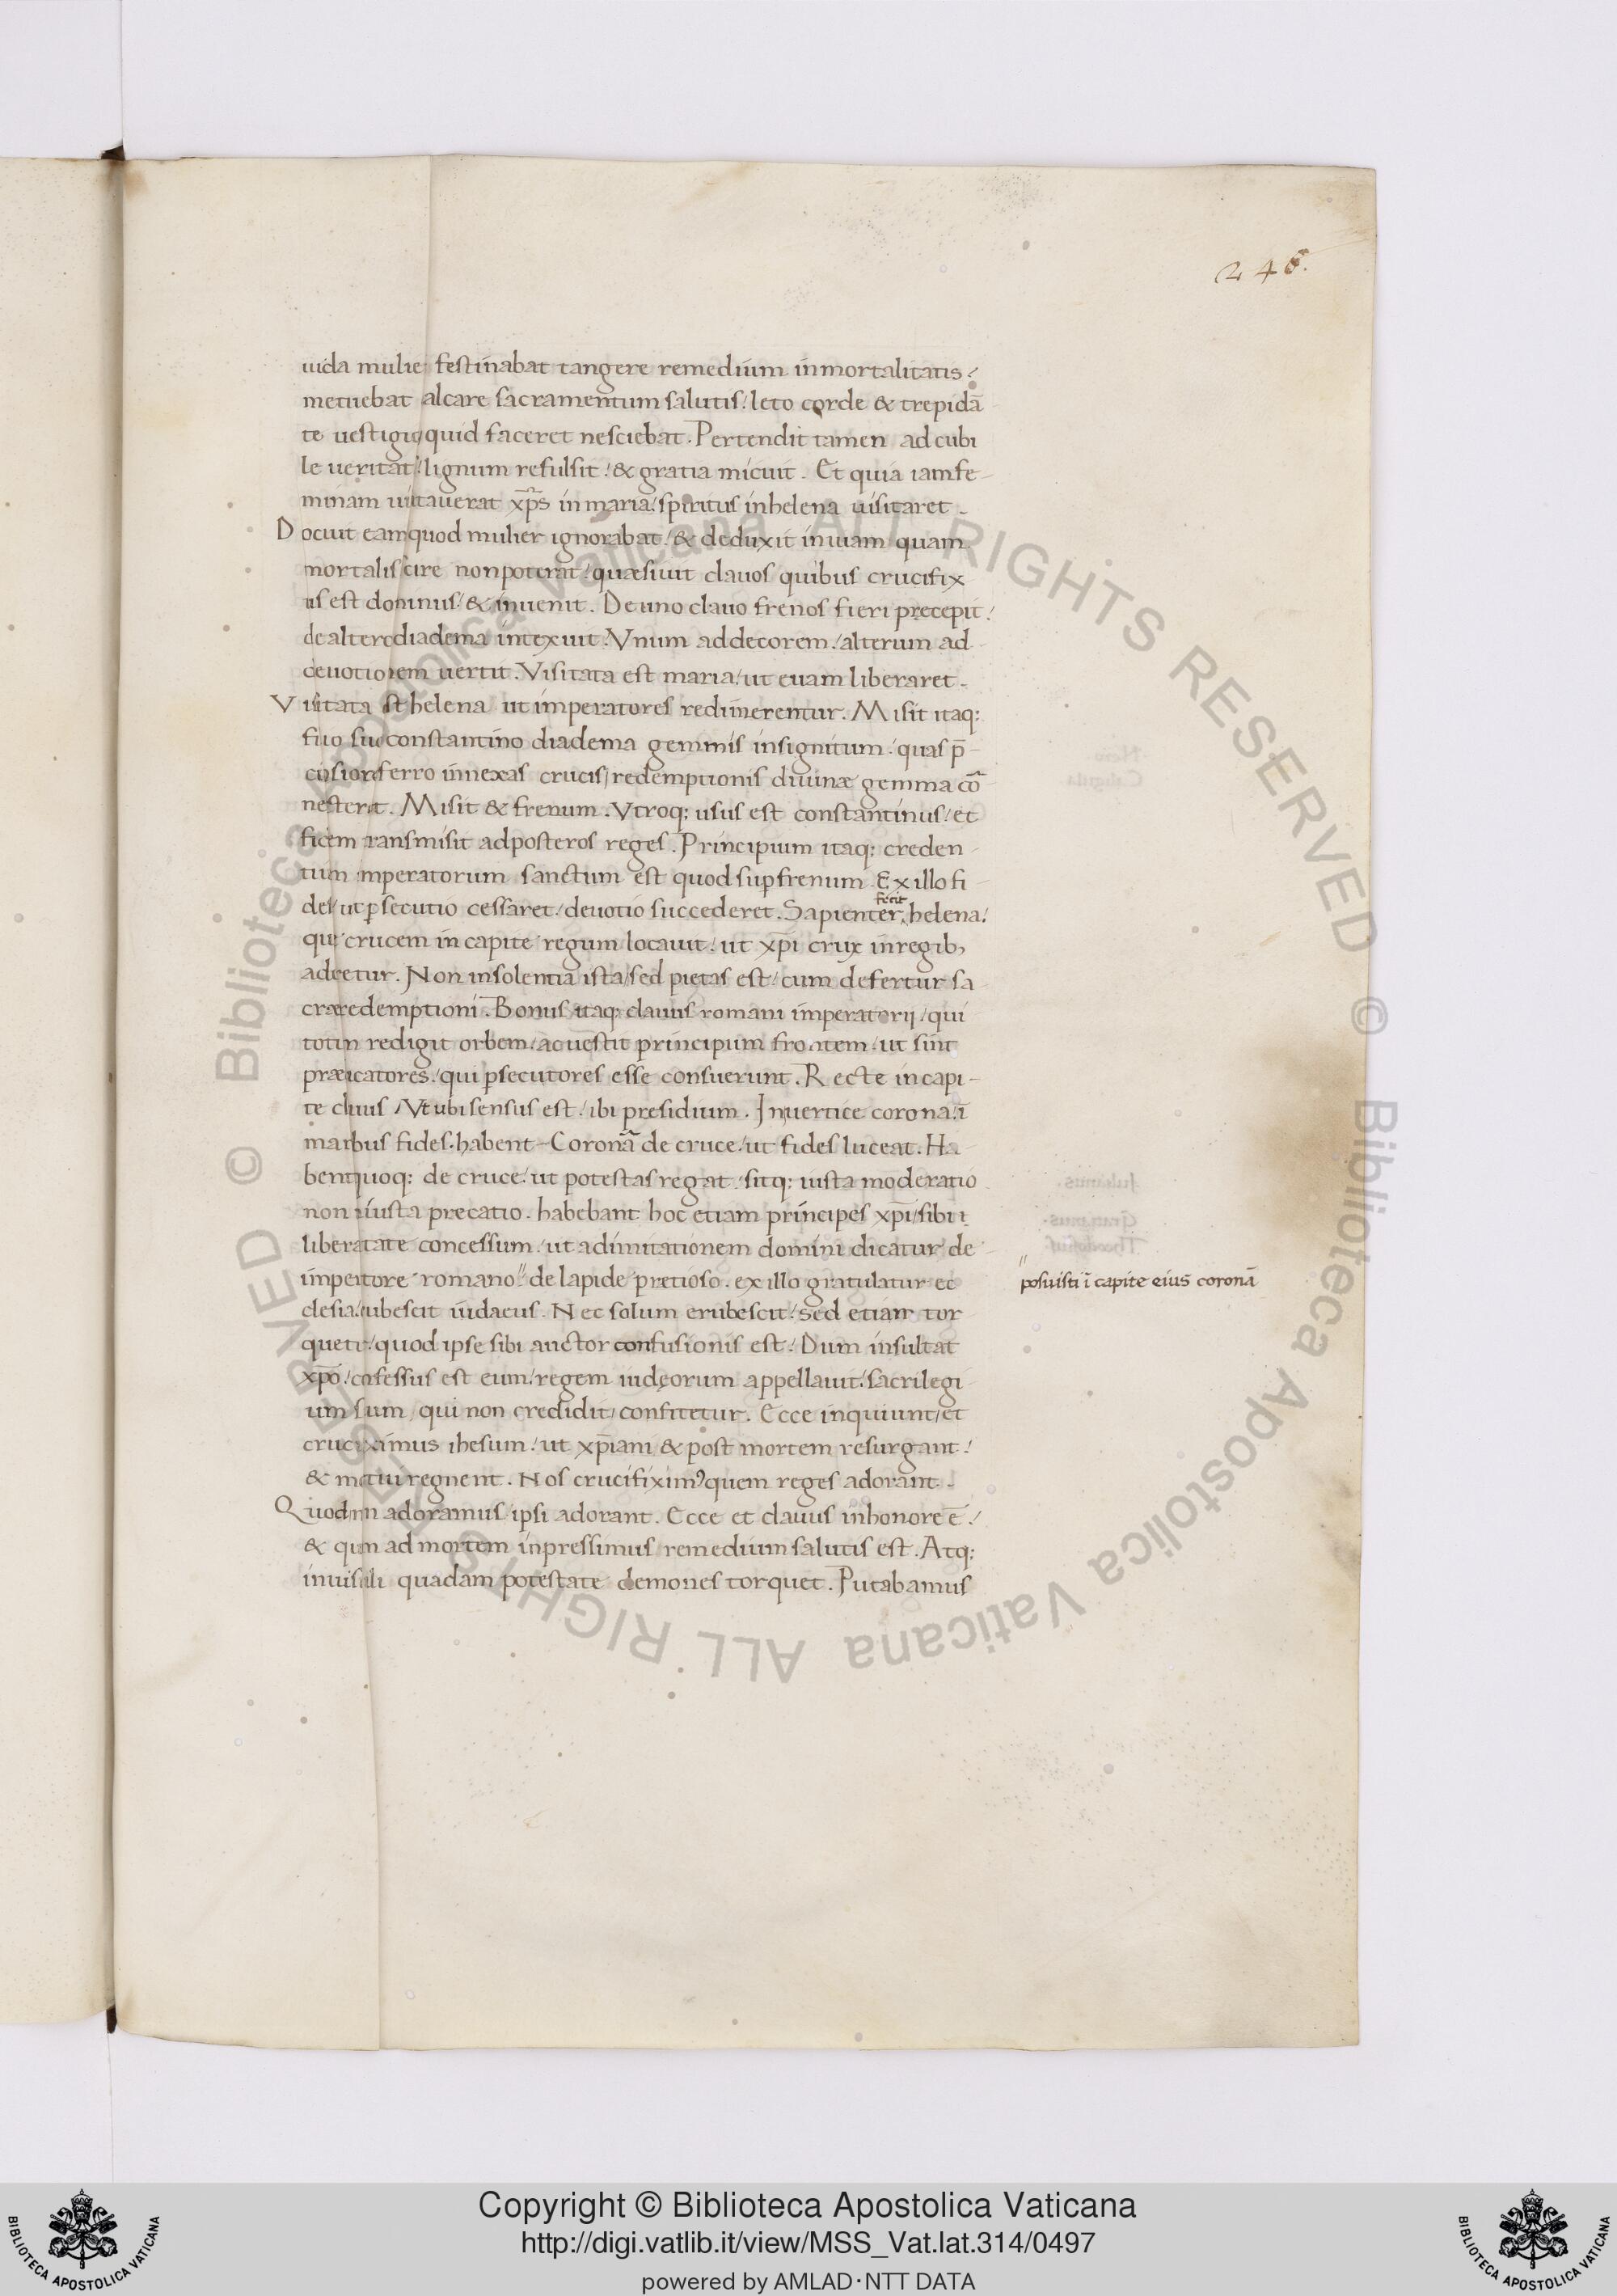 246.
uida mulie festinabat tangere remedium inmortalitatis/
metuebat alcare sacramentum salutis/ leto corde & trepidā
te uestigio quid faceret nesciebat. Pertendit tamen ad cubi
le ueritat/ lignum refulsit/ & gratia micuit. Et quia iam fe
minam uisitauerat xp̄s in maria/ spiritus in helena uisitaret.
Docuit eam quod mulier ignorabat/ & deduxit in uiam quam
mortalis scire non poterat/ quæsiuit clauos quibus crucifix
us est dominus/ & inuenit. De uno clauo frenos fieri precepit/
de altero diadema intexuit. Vnum ad decorem/ alterum ad
deuotionem uertit. Visitata est maria/ ut euam liberaret.
Visitata est helena ut imperatores redimerentur. Misit itaq:
filio suo constantino diadema gemmis insignitum/ quas p̄
ciosior ferro innexas crucis/ redemptionis diuinæ gemma cō
necteret. Misit & frenum. Vtroq: usus est constantinus/ et
fidem transmisit ad posteros reges. Principium itaq: creden
tium imperatorum sanctum est quod sup frenum. Ex illo fi
des/ ut psecutio cessaret/ deuotio succederet. Sapienter fecit helena/
que crucem in capite regum locauit/ ut xp̄i crux in regib;
adoretur. Non insolentia ista/ sed pietas est/ cum defertur sa
cræ redemptioni. Bonus itaq: clauus romani imperatorij/ qui
totum redigit orbem/ ac uestit principum frontem/ ut sint
prædicatores/ qui psecutores esse consuerunt. Recte in capi
te clauus/ Vt ubi sensus est/ ibi presidium. In uertice corona/ ī
manibus fides. habent Coronā de cruce/ ut fides luceat. Ha
bent quoq: de cruce/ ut potestas regat/ sitq: iusta moderatio
non iniusta precatio. habebant hoc etiam principes xp̄i/ sibi i
liberalitate concessum/ ut ad imitationem domini dicatur de
imperatore romano" de lapide pretioso. ex illo gratulatur ec
clesia/ erubescit iudaeus. Nec solum erubescit/ sed etiam tor
quetur/ quod ipse sibi auctor confusionis est/ Dum insultat
xp̄o/ confessus est eum/ regem iudęorum appellauit/ sacrilegi
um suum, qui non credidit/ confitetur. Ecce inquiunt/ et
crucifiximus ihesum/ ut xp̄iani & post mortem resurgant/
& mortui regnent. Nos crucifixim⁹ quem reges adorant.
Quod non adoramus ipsi adorant. Ecce et clauus in honore ē/
& quem ad mortem inpressimus/ remedium salutis est. Atq:
inuisibili quadam potestate demones torquet. Putabamus
" posuisti ī capite eius coronā
Copyright © Biblioteca Apostolica Vaticana
http://digi.vatlib.it/view/MSS_Vat.lat.314/0497
powered by AMLAD·NTT DATA
BIBLIOTECA APOSTOLICA VATICANA
BIBLIOTECA APOSTOLICA VATICANA
© Biblioteca Apostolica Vaticana ALL RIGHTS RESERVED © Biblioteca Apostolica Vaticana ALL RIGHTS RESERVED